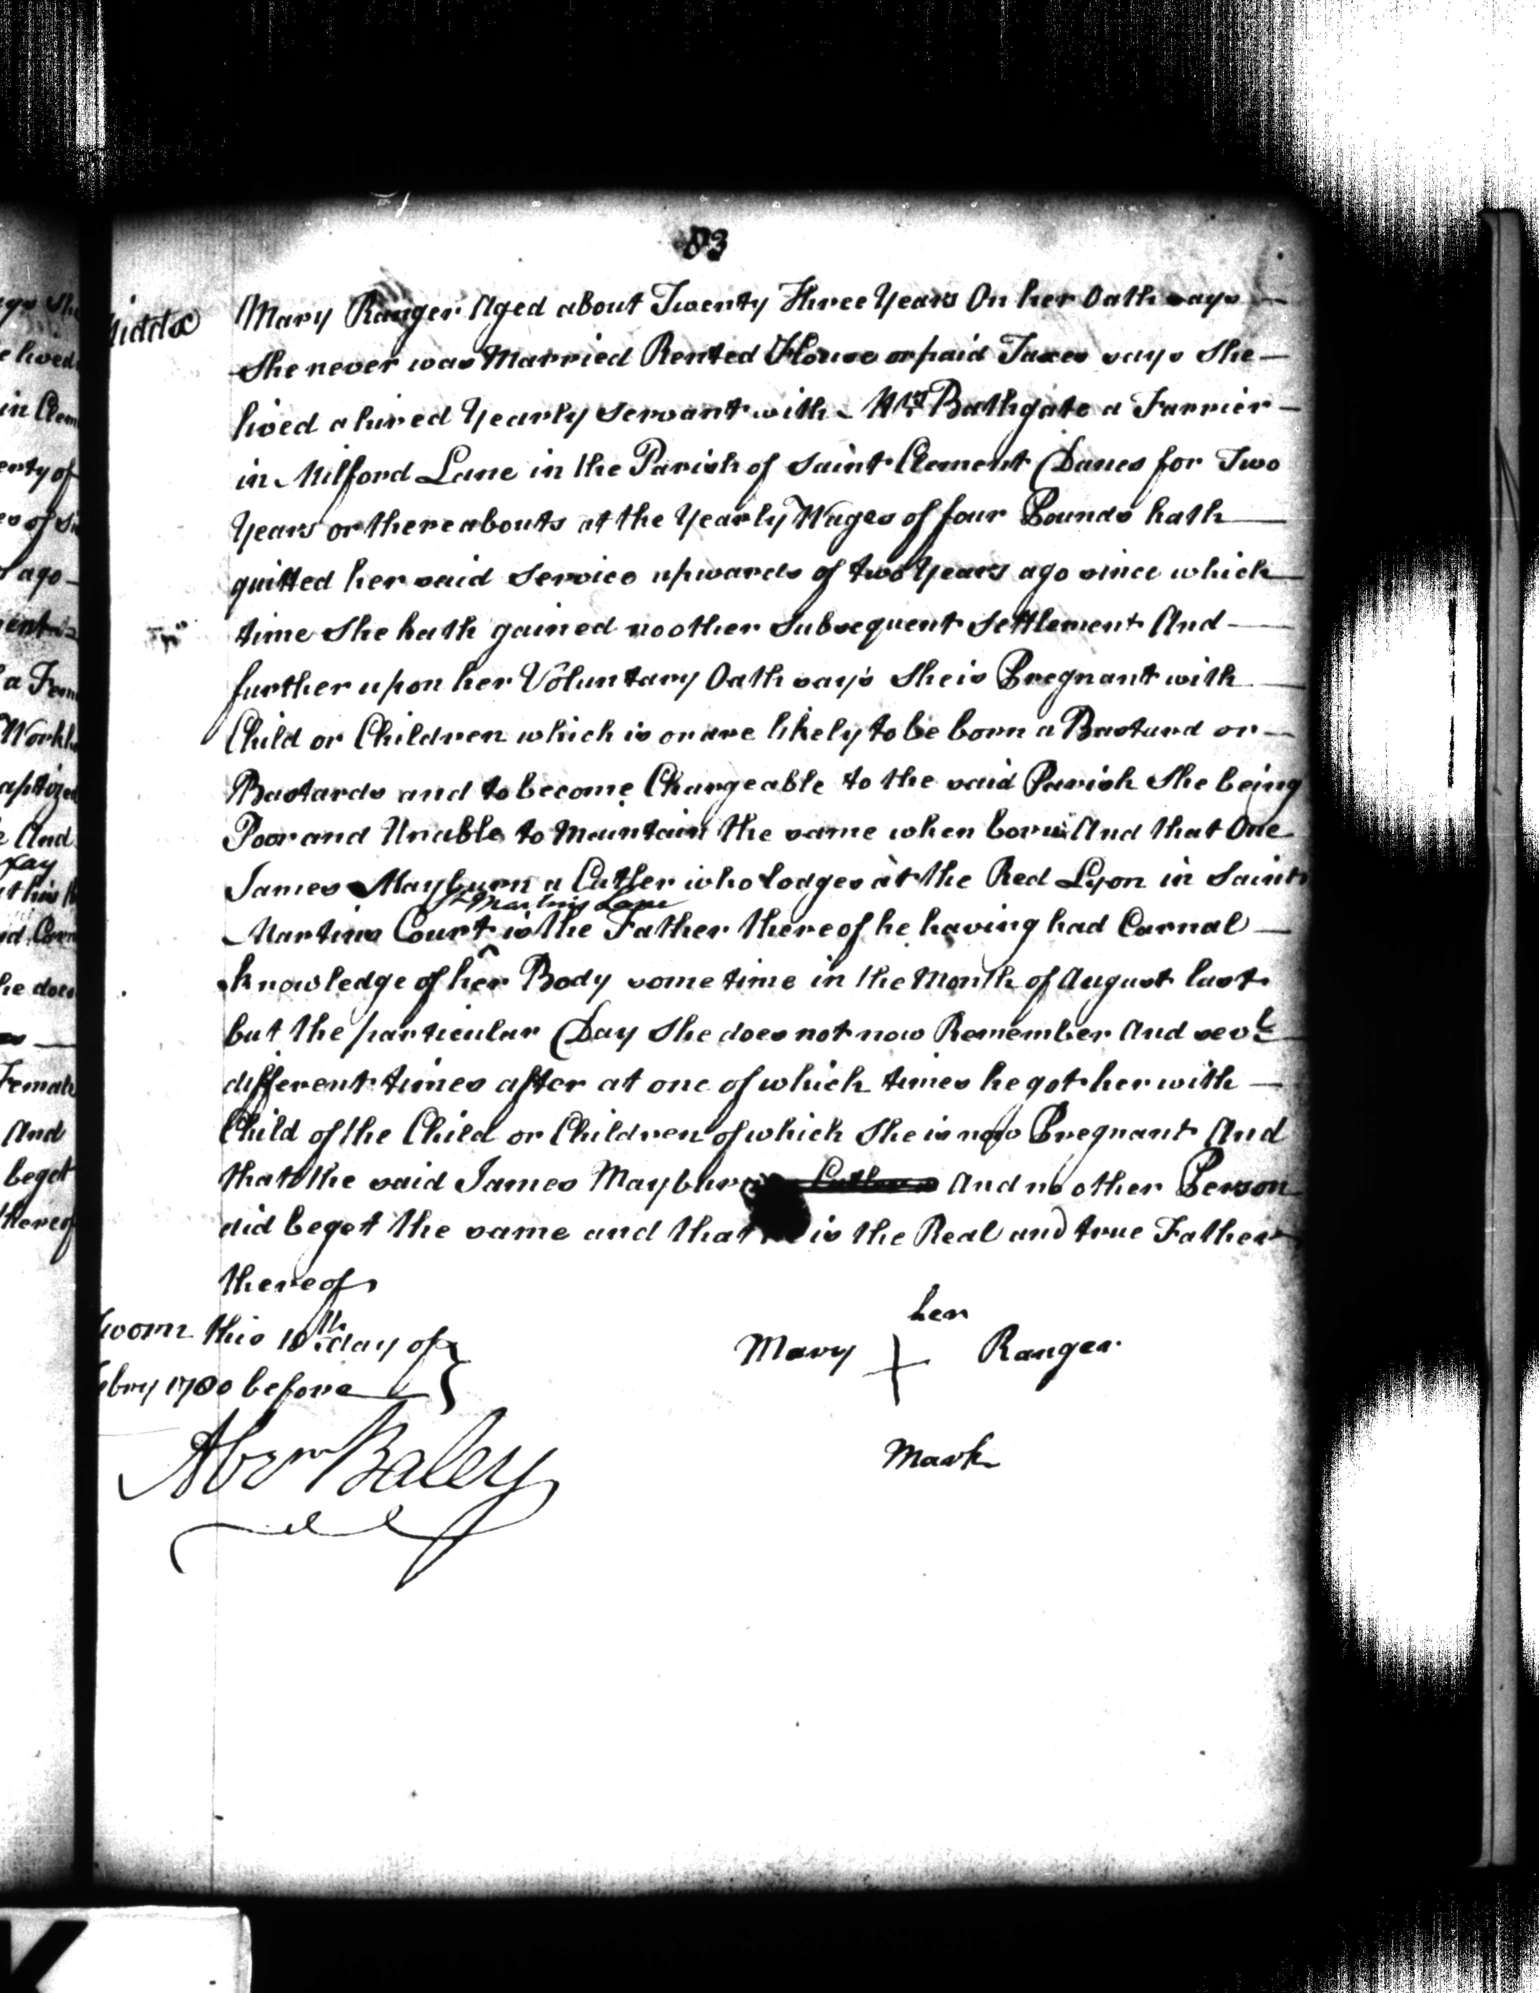 83
Middx
Mary Ranger Aged about Twenty Three Years On her Oath says
She never was Married Rented House or paid Taxes says She
lived a hired Yearly Servant with Bathgate a Farrier
in Milford Lane in the Parish of Saint Clement Danes for Two
Years or thereabouts at the Yearly Wages of four Pounds hath
quitted her said Service upwards of two Years ago since which
time She hath gained no other Subsequent Settlement And
further upon her Voluntary Oath says She is Pregnant with
Child or Children which is or are likely to be born a Bastard or
Bastards and to become Chargeable to the said Parish She being
Poor and Unable to Maintain the same when born And that One
James Mayburn a Cutler who lodges at the Red Lyon in Saint
St Martins Lane
Martins Court ^ is the Father thereof he having had Carnal
knowledge of her Body some time in the Month of August last
but the particular Day She does not now Remember And sevl
different times after at one of which times he got her with
Child of the Child or Children of which She is now Pregnant And
that the said James Mayburn And no other Person
did beget the same and that is the Real and true Father
thereof
Sworn this 18th day of
Febry 1780 before
her
Mary + Ranger
Mark
Abrm Baley
ago She
lived
in Clem
erty of
ago
a Fem
Workh
aptized
And
he does
Female
And
beget
thereof
K